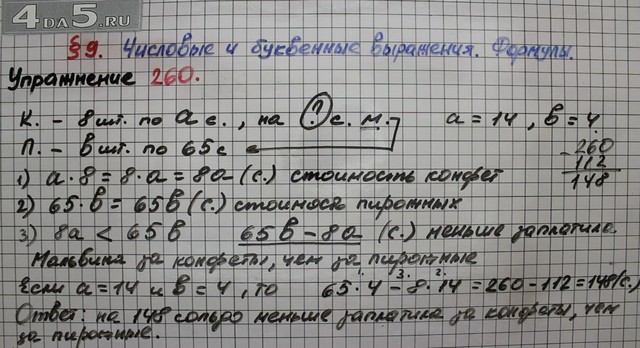 4DA5.RU
§ 9. Числовые и буквенные выражения. Формулы.
Упражнение 260.
К. - 8 шт. по a с., на ? с. м. a = 14, b = 4
П. - b шт. по 65 с
- 260
112
148
1) a · 8 = 8 · a = 8a (с.) стоимость конфет
2) 65 · b = 65b (с.) стоимость пирожных
3) 8a < 65b 65b - 8a (с.) меньше заплатила
Мальвина за конфеты, чем за пирожные
Если a = 14 и b = 4, то 65 · 4 - 8 · 14 = 260 - 112 = 148 (с.)
1. 3. 2.
Ответ: на 148 сольдо меньше заплатила за конфеты, чем
за пирожные.